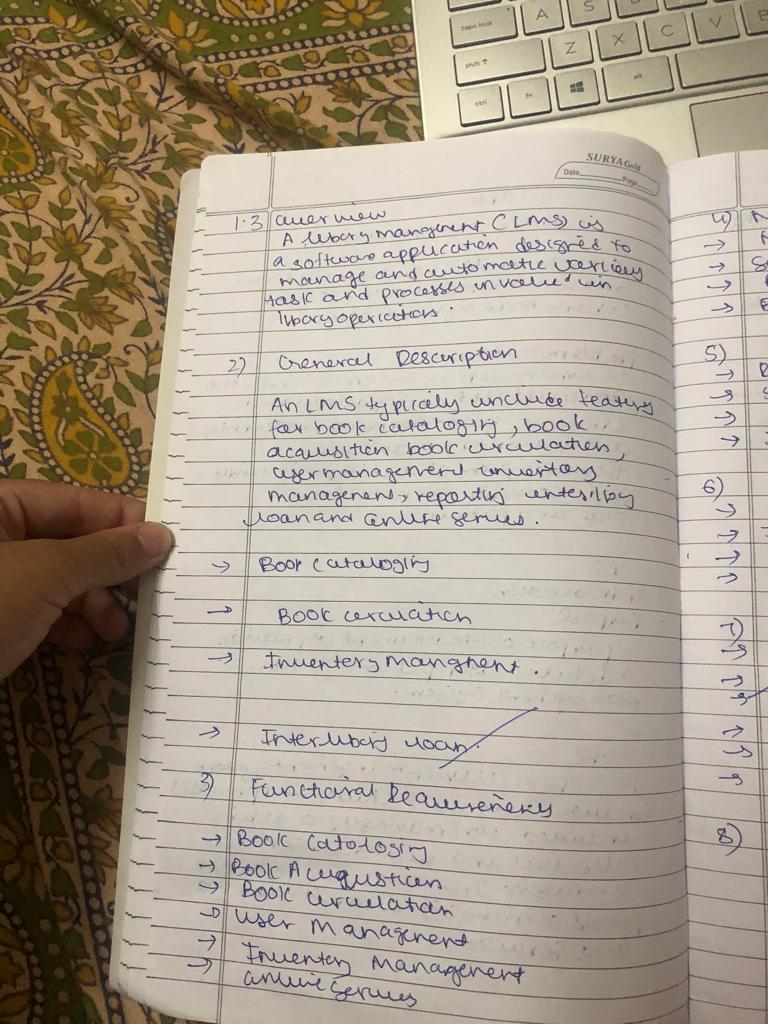 caps lock A S
Z X C V B
shift ↑
ctrl fn alt
SURYA Gold
Date Page
1.3 Overview
A libery mangement (LMS) is
a software application designed to
manage and automatic various
task and processes involved in
libory operation.
2) General Description
An LMS typically include features
for book cataloging, book
acqusition book circulation,
user management inventory
management, reporting interlibry
loan and online servies.
→ Book Cataloging
→ Book circulation
→ Inventery mangment.
→ Interlibary loan.
3) Functional Requirements
→ Book Catologing
→ Book Acqustion
→ Book circulation
→ User Management
→ Inventory Management
→ online servies
4)
→
→
→
→
5)
→
→
→
→
6)
→
→
→
→
7)
→
→
→
→
→
→
8)